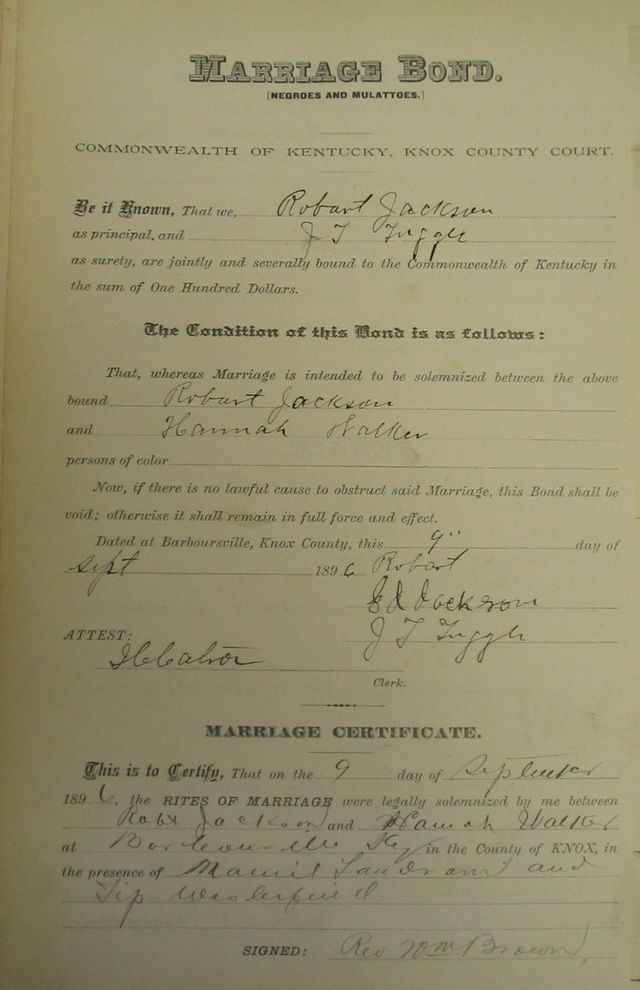 MARRIAGE BOND.
[NEGROES AND MULATTOES.]
COMMONWEALTH OF KENTUCKY, KNOX COUNTY COURT.
Be it Known, That we, Robart Jackson
as principal, and J T Tuggle
as surety, are jointly and severally bound to the Commonwealth of Kentucky in
the sum of One Hundred Dollars.
The Condition of this Bond is as follows:
That, whereas Marriage is intended to be solemnized between the above
bound Robart Jackson
and Hannah Walker
persons of color
Now, if there is no lawful cause to obstruct said Marriage, this Bond shall be
void; otherwise it shall remain in full force and effect.
Dated at Barboursville, Knox County, this 9" day of
Sept 1896 Robart
Jackson
J T Tuggle
ATTEST:
Clerk.
MARRIAGE CERTIFICATE.
This is to Certify, That on the 9 day of September
1896, the RITES OF MARRIAGE were legally solemnized by me between
Robt Jackson and Hannah Walker
at Ky in the County of KNOX, in
the presence of and
Tip
SIGNED: Rev Wm Brown,